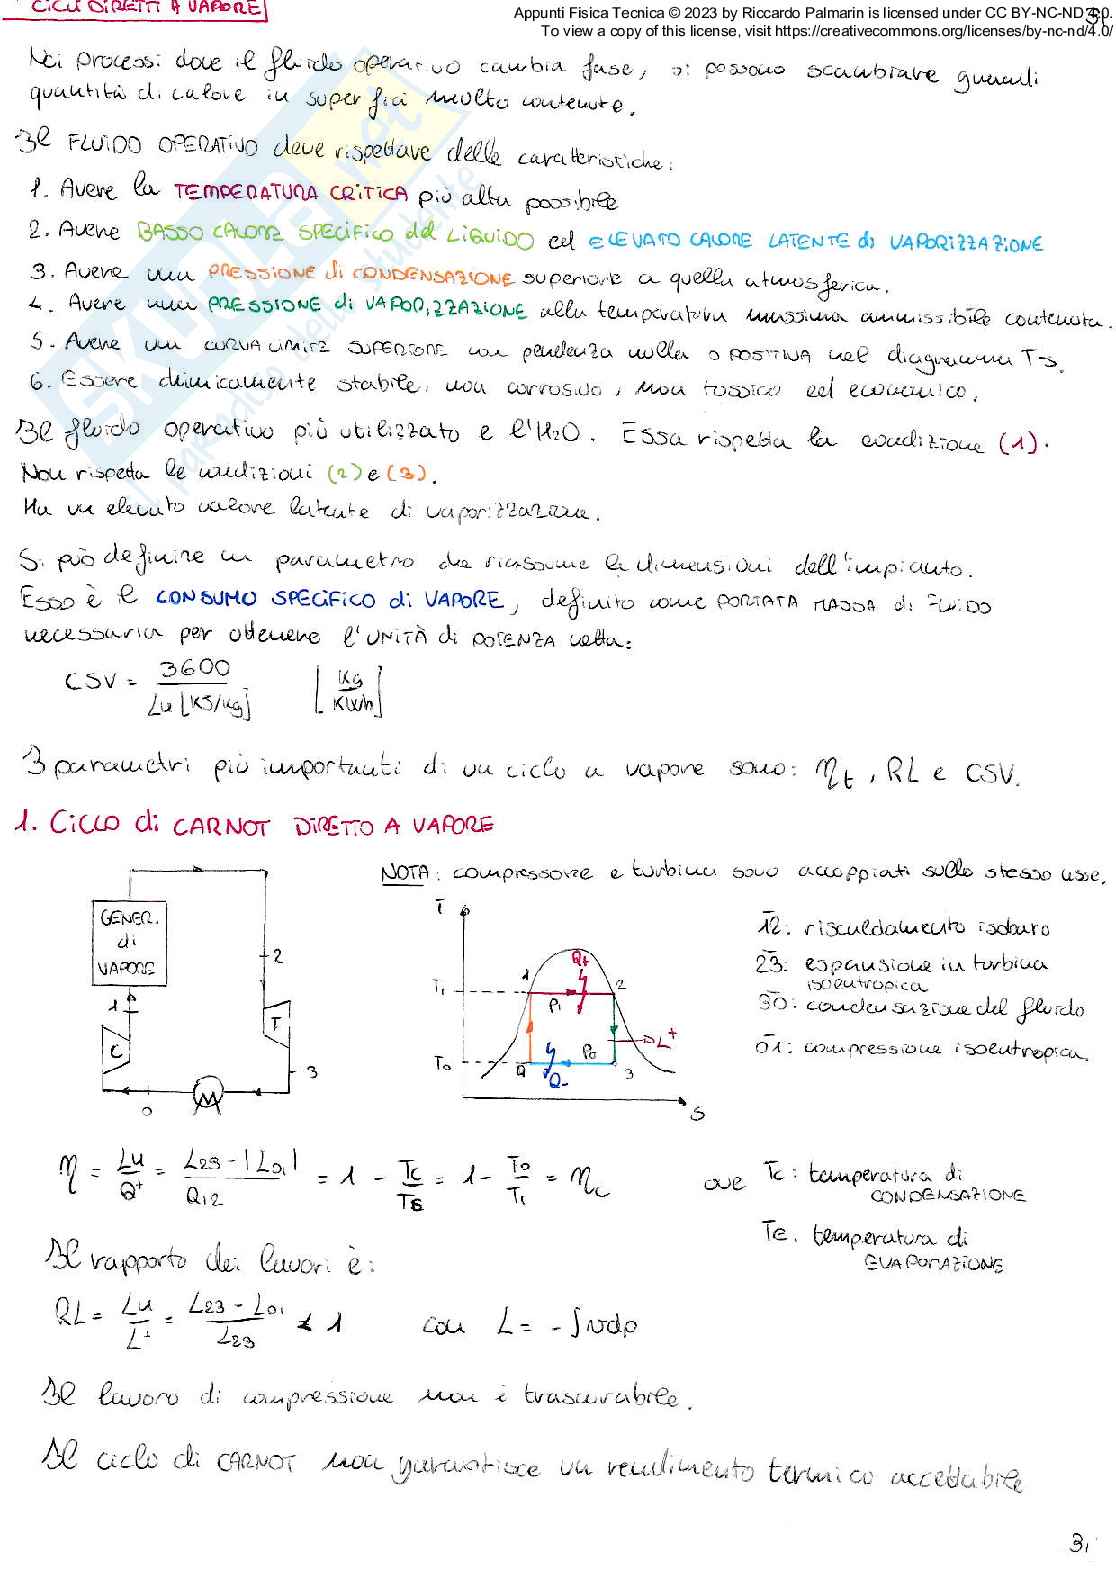 CICLI DIRETTI A VAPORE
Appunti Fisica Tecnica © 2023 by Riccardo Palmarin is licensed under CC BY-NC-ND 4.0.
To view a copy of this license, visit https://creativecommons.org/licenses/by-nc-nd/4.0/
Nei processi dove il fluido operativo cambia fase, si possono scambiare grandi
quantità di calore in superfici molto contenute.
Il FLUIDO OPERATIVO deve rispettare delle caratteristiche:
1. Avere la TEMPERATURA CRITICA più alta possibile
2. Avere BASSO CALORE SPECIFICO del LIQUIDO ed ELEVATO CALORE LATENTE di VAPORIZZAZIONE
3. Avere una PRESSIONE di CONDENSAZIONE superiore a quella atmosferica.
4. Avere una PRESSIONE di VAPORIZZAZIONE alla temperatura massima ammissibile contenuta.
5. Avere una CURVA LIMITE SUPERIORE con pendenza nulla o POSITIVA nel diagramma T-S.
6. Essere chimicamente stabile, non corrosivo, non tossico ed economico.
Il fluido operativo più utilizzato è l'H2O. Essa rispetta la condizione (1).
Non rispetta le condizioni (2) e (3).
Ha un elevato calore latente di vaporizzazione.
Si può definire un parametro che riassume le dimensioni dell'impianto.
Esso è il CONSUMO SPECIFICO di VAPORE, definito come PORTATA MASSA di FLUIDO
necessaria per ottenere l'UNITÀ di POTENZA netta:
CSV = 3600 / Lu [KJ/kg] [kg / KWh]
I 3 parametri più importanti di un ciclo a vapore sono: ηt, RL e CSV.
1. CICLO di CARNOT DIRETTO A VAPORE
NOTA: compressore e turbina sono accoppiati sullo stesso asse.
GENER.
di
VAPORE
1
2
C
T
3
0
T
T1
T0
1
2
Q+
P1
P0
L+
0
Q-
3
S
12: riscaldamento isobaro
23: espansione in turbina
isoentropica
30: condensazione del fluido
01: compressione isoentropica.
η = Lu / Q+ = L23 - |L01| / Q12 = 1 - Tc / TE = 1 - T0 / T1 = ηc
ove Tc: temperatura di
CONDENSAZIONE
TE: temperatura di
EVAPORAZIONE
Il rapporto dei lavori è:
RL = Lu / L+ = L23 - L01 / L23 < 1 con L = - ∫vdp
Il lavoro di compressione non è trascurabile.
Il ciclo di CARNOT non garantisce un rendimento termico accettabile